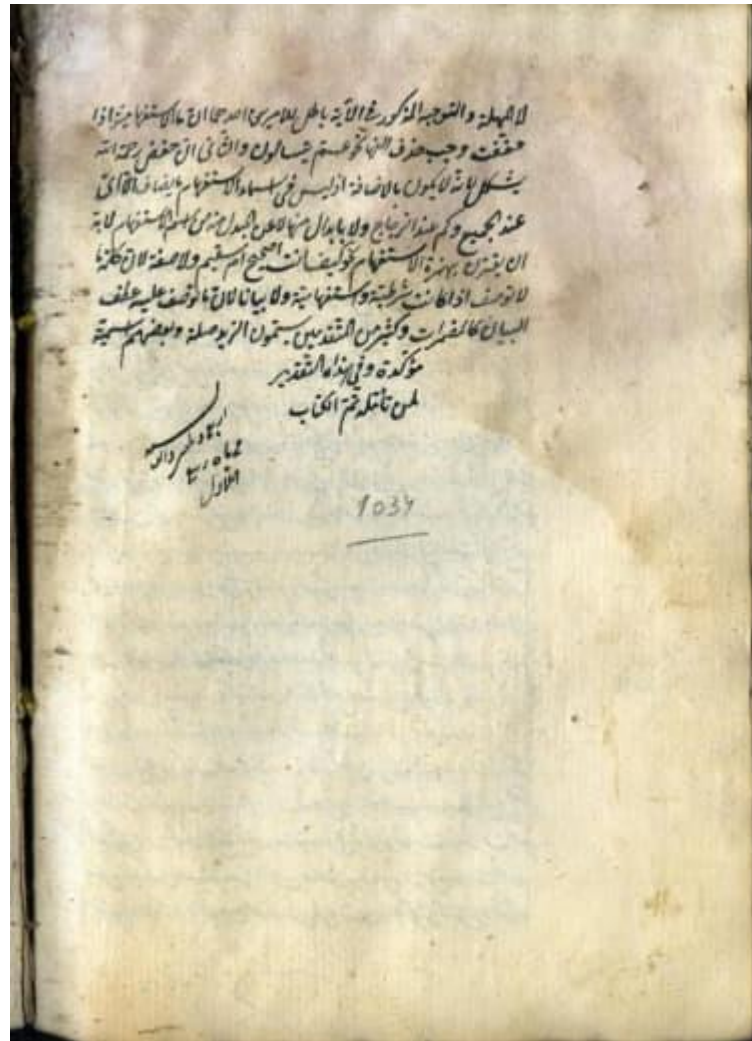 لا المهملة والتوجيه المذكور في الآية باطل لامرين احدهما ان ما الاستفهامية اذا
خفضت وجب حذف الفها نحو عم يتسالون والثاني ان خفض رحمة الله
يشكل لانه لا يكون بالاضافة اذ ليس في اسماء الاستفهام ما يضاف الا اي
عند الجميع وكم عند الزجاج ولا بابدال من ما لان المبدل من اسم الاستفهام لا بد
ان يقترن بهمزة الاستفهام نحو كيف انت اصحيح ام سقيم ولا صفة لان ما
لا توصف اذا كانت شرطية واستفهامية ولا بيانا لان ما لا توصف عليه عطف
البيان كالمضمرات وكثير من المتقدمين يسمون الزايد صلة وبعضهم يسميه
مؤكدة وفي هذا التقدير
لمن تأمله تم الكتاب
1034